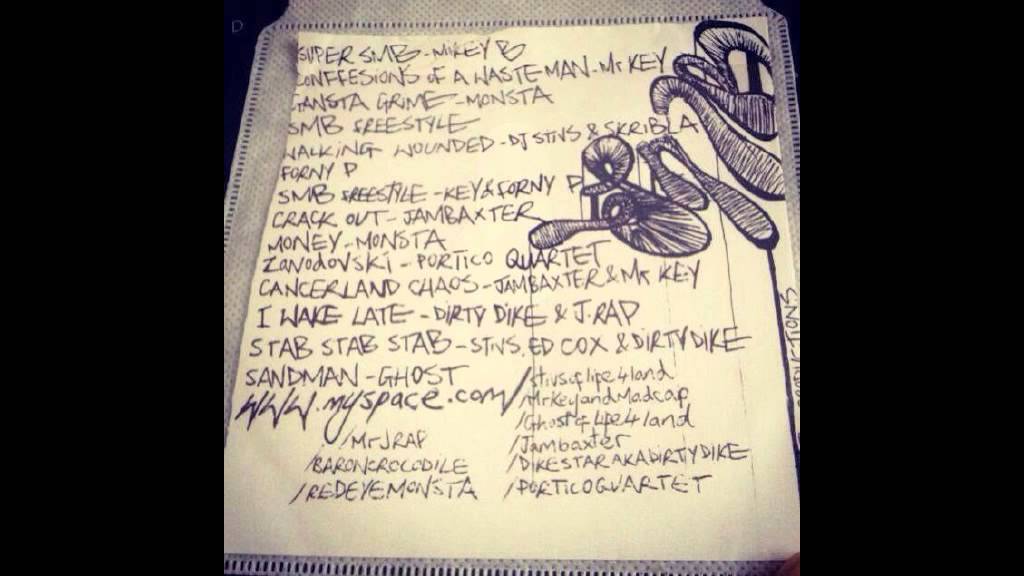 SUPER SMB - MIKEY B
CONFFESIONS OF A WASTEMAN - Mr KEY
GANSTA GRIME - MONSTA
SMB FREESTYLE
WALKING WOUNDED - DJ STIVS & SKRIBLA
FORNY P
SMB FREESTYLE - KEY & FORNY P
CRACK OUT - JAMBAXTER
MONEY - MONSTA
Zavodovski - PORTICO QUARTET
CANCERLAND CHAOS - JAMBAXTER & Mr KEY
I WAKE LATE - DIRTY DIKE & J.RAP
STAB STAB STAB - STIVS, ED COX & DIRTY DIKE
SANDMAN - GHOST
WWW.myspace.com/
/stivsoflife4land
/MrKeyandMadcap
/Ghostoflife4land
/Jambaxter
/DIKESTARAKADIRTYDIKE
/PORTICOQUARTET
/MrJRAP
/BARONCROCODILE
/REDEYEMONSTA